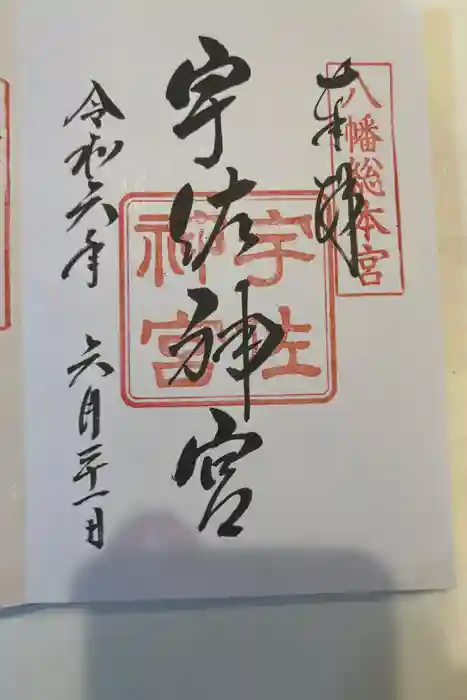 奉拝
八幡総本宮
宇佐神宮
宇佐
神宮
令和六年 六月二十一日